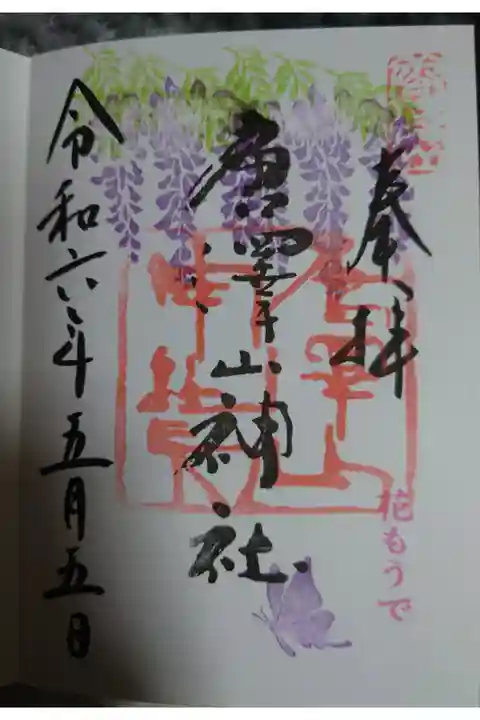 奉拝
唐澤山神社
令和六年五月五日
花もうで